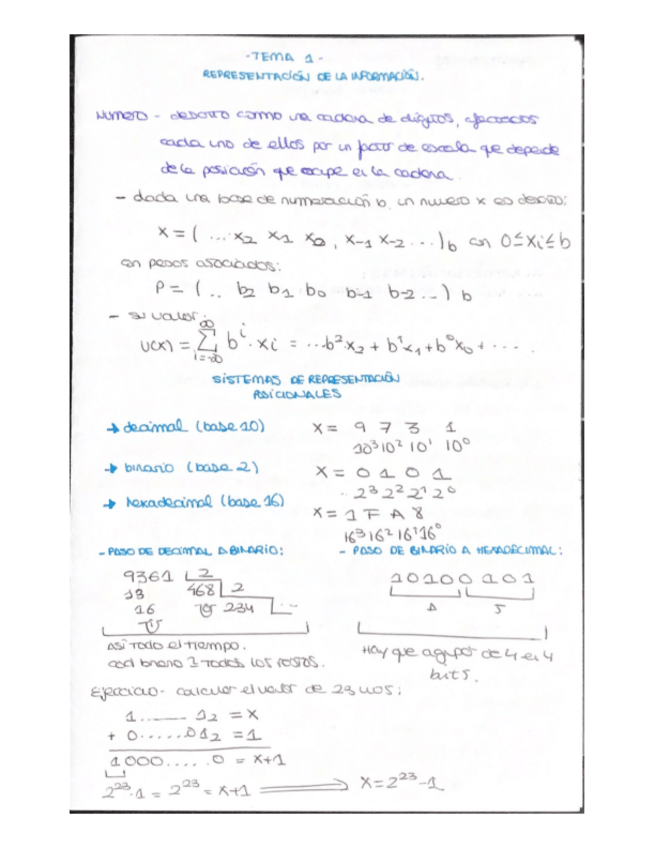 - TEMA 1 -
REPRESENTACIÓN DE LA INFORMACIÓN.
NUMERO - descrito como una cadena de dígitos, afectados
cada uno de ellos por un factor de escala que depende
de la posición que ocupe en la cadena.
- dada una base de numeración b, un numero x es descrito:
X = ( ... x2 x1 x0, x-1 x-2 ... )b con 0≤xi≤b
con pesos asociados:
P = ( .. b2 b1 b0 b-1 b-2 .. ) b
- su valor:
V(x) = ∑ i=-∞ ∞ b^i · xi = ... b²x2 + b¹x1 + b⁰x0 + ....
SISTEMAS DE REPRESENTACIÓN
POSICIONALES
→ decimal (base 10) X = 9 7 3 1
10³ 10² 10¹ 10⁰
→ binario (base 2) X = 0 1 0 1
2³ 2² 2¹ 2⁰
→ hexadecimal (base 16) X = 1 F A 8
16³ 16² 16¹ 16⁰
- PASO DE DECIMAL A BINARIO: - PASO DE BINARIO A HEXADECIMAL:
9361 2 10100101
468 2
16 234 ...
5
Así todo el tiempo.
Hay que agrupar de 4 en 4
bits.
cod binario 3 todos los restos.
Ejercicio - calcular el valor de 23 unos:
1........ 1 2 = X
+ 0......01 2 = 1
1000.....0 = X+1
2²³·1 = 2²³ = X+1 ⟹ X = 2²³-1